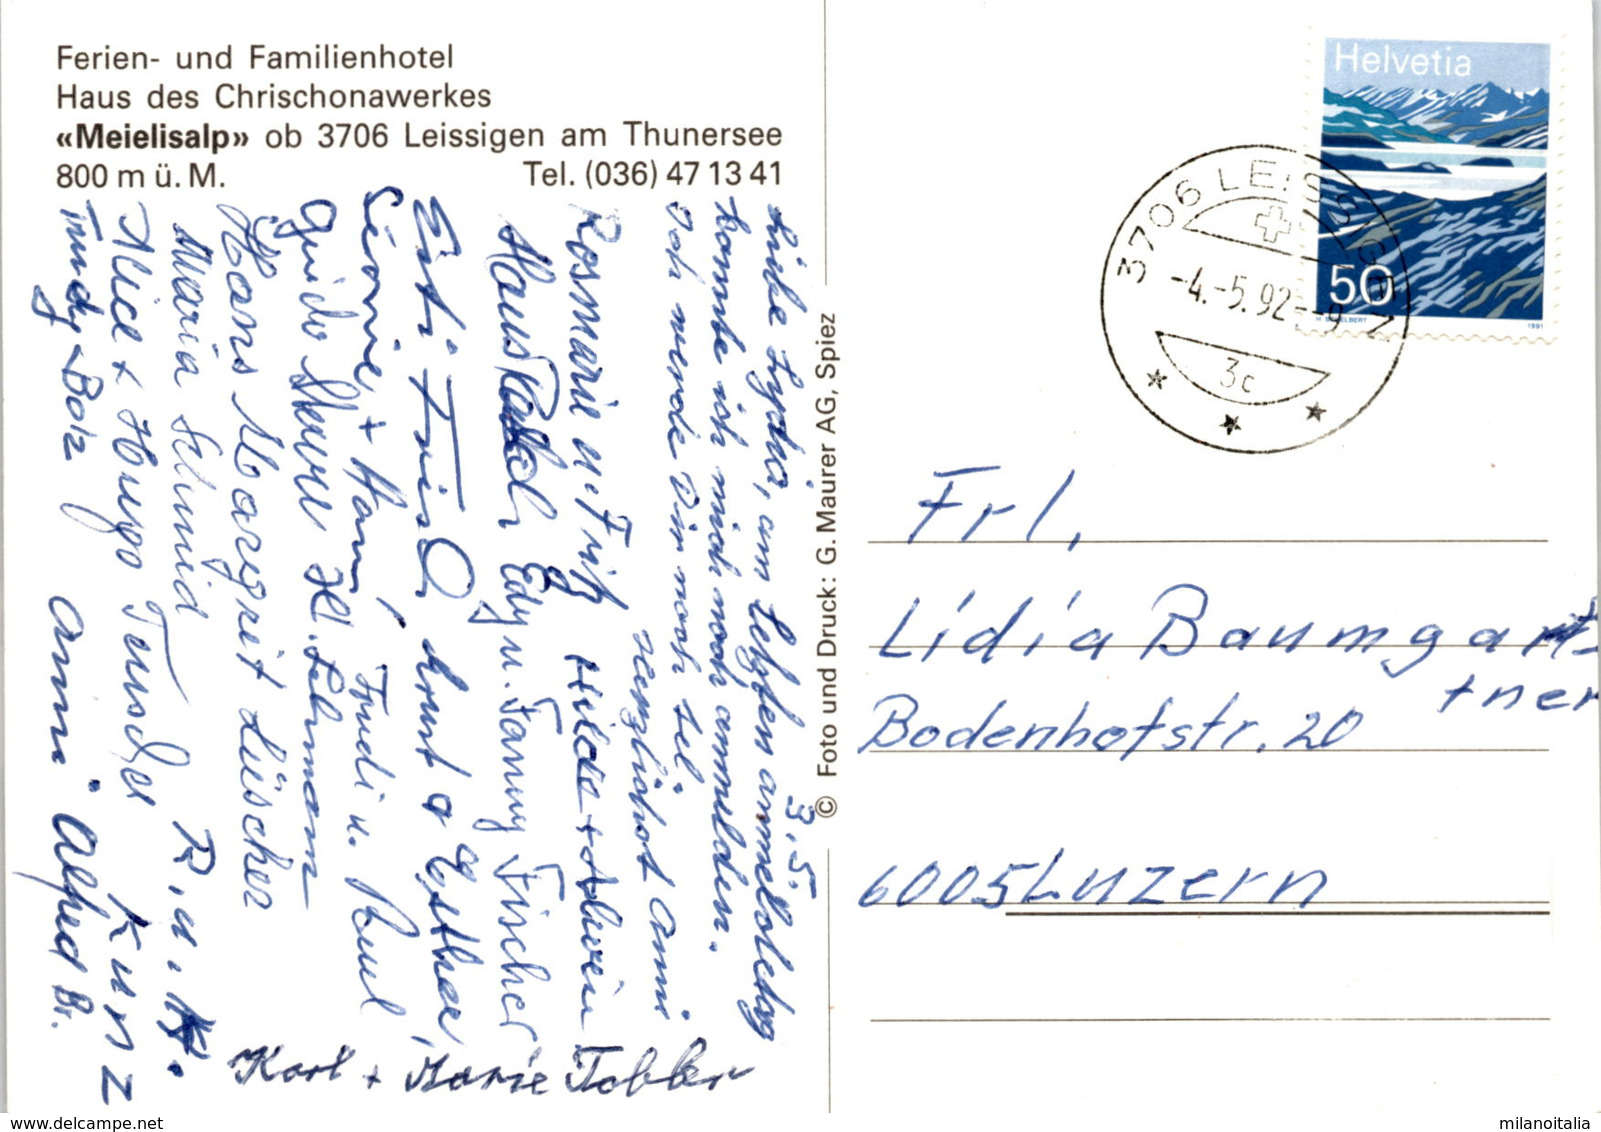 Ferien- und Familienhotel
Haus des Chrischonawerkes
«Meielisalp» ob 3706 Leissigen am Thunersee
800 m ü. M. Tel. (036) 47 13 41
3.5.
Liebe Lydia, am letzten anmeldetag
konnte ich mich noch anmelden.
Ich werde Dir noch tel
herzlichst Anni
Rosmarie u. Fritz Hilde + Alwin
Edy u. Fanny Fischer
Ernst & Esther
+ Hanni, Trudi u. Paul
Guido H. Lehmann
Hans Margrit Lüscher
Maria Schmid R. u. K.
Alice + Hugo Tenschel Kunz
Trudy Bolz Anni Alfred Br.
Karl + Marie Tobler
© Foto und Druck: G. Maurer AG, Spiez
Helvetia
50
1991
3706 LEISSIGEN
-4.-5.92--9
3c
Frl,
Lidia Baumgar
tner
Bodenhofstr. 20
6005 Luzern
www.delcampe.net
milanoitalia